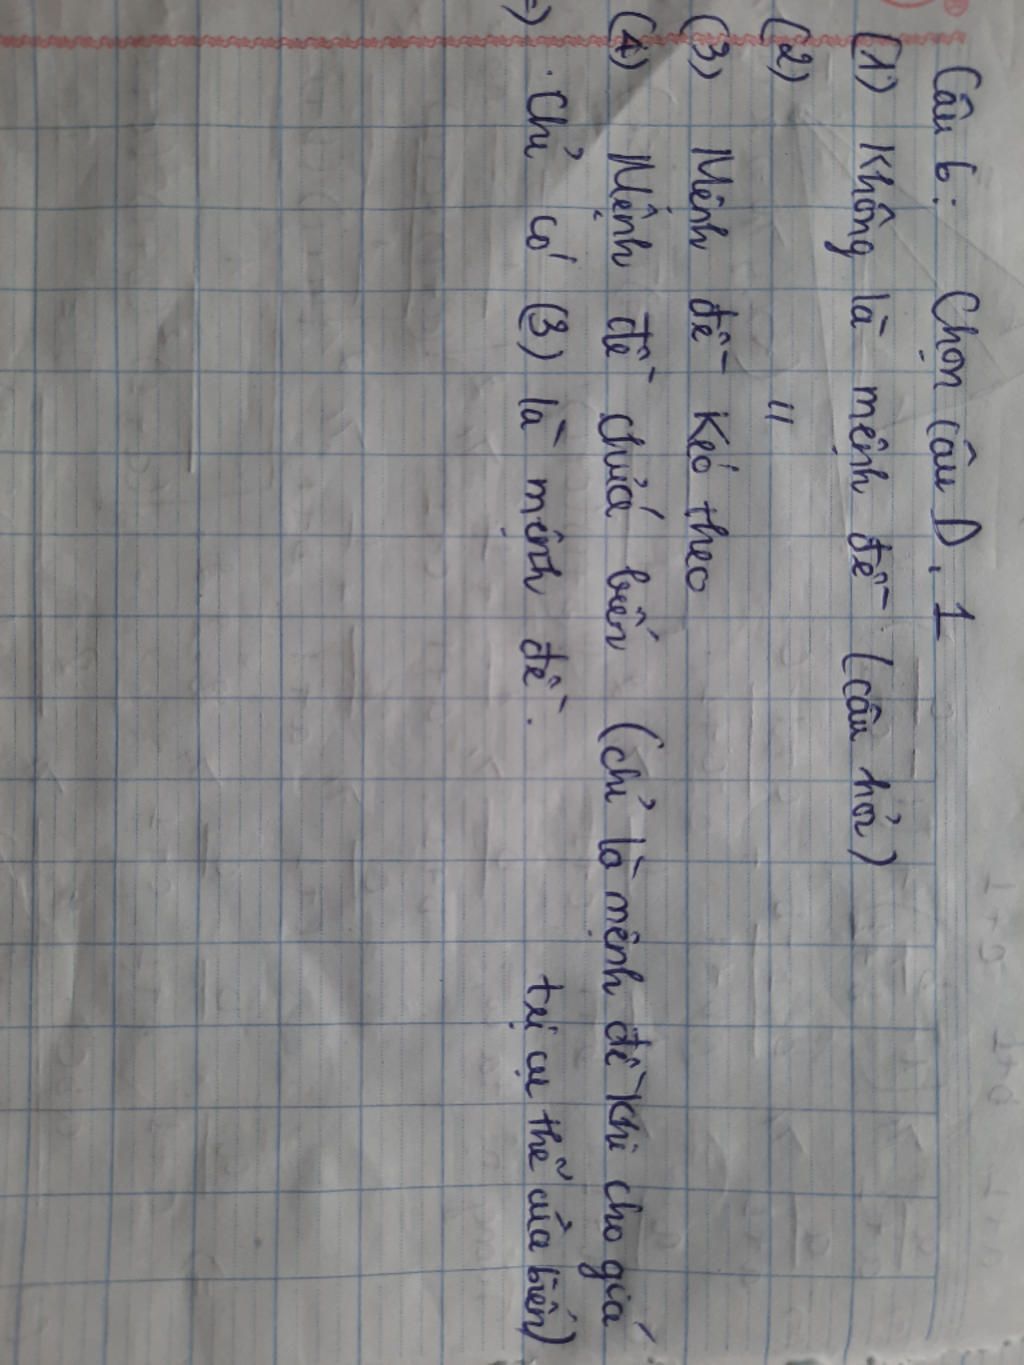 Câu 6: Chọn câu D. 1
(1) Không là mệnh đề (câu hỏi)
(2) "
(3) Mệnh đề kéo theo
(4) Mệnh đề chứa biến (chỉ là mệnh đề khi cho giá
trị cụ thể của biến)
=) . Chỉ có (3) là mệnh đề.